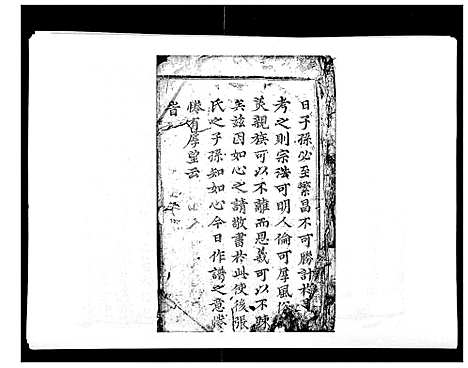 日子孫必至繁昌不可勝計
考之則宗法可明人倫可厚風
美親族可以不離而恩義可以不疎
矣兹因如心之請敬書於此使後張
氏之子孫知如心今日作譜之意惓
惓有厚望云
旹